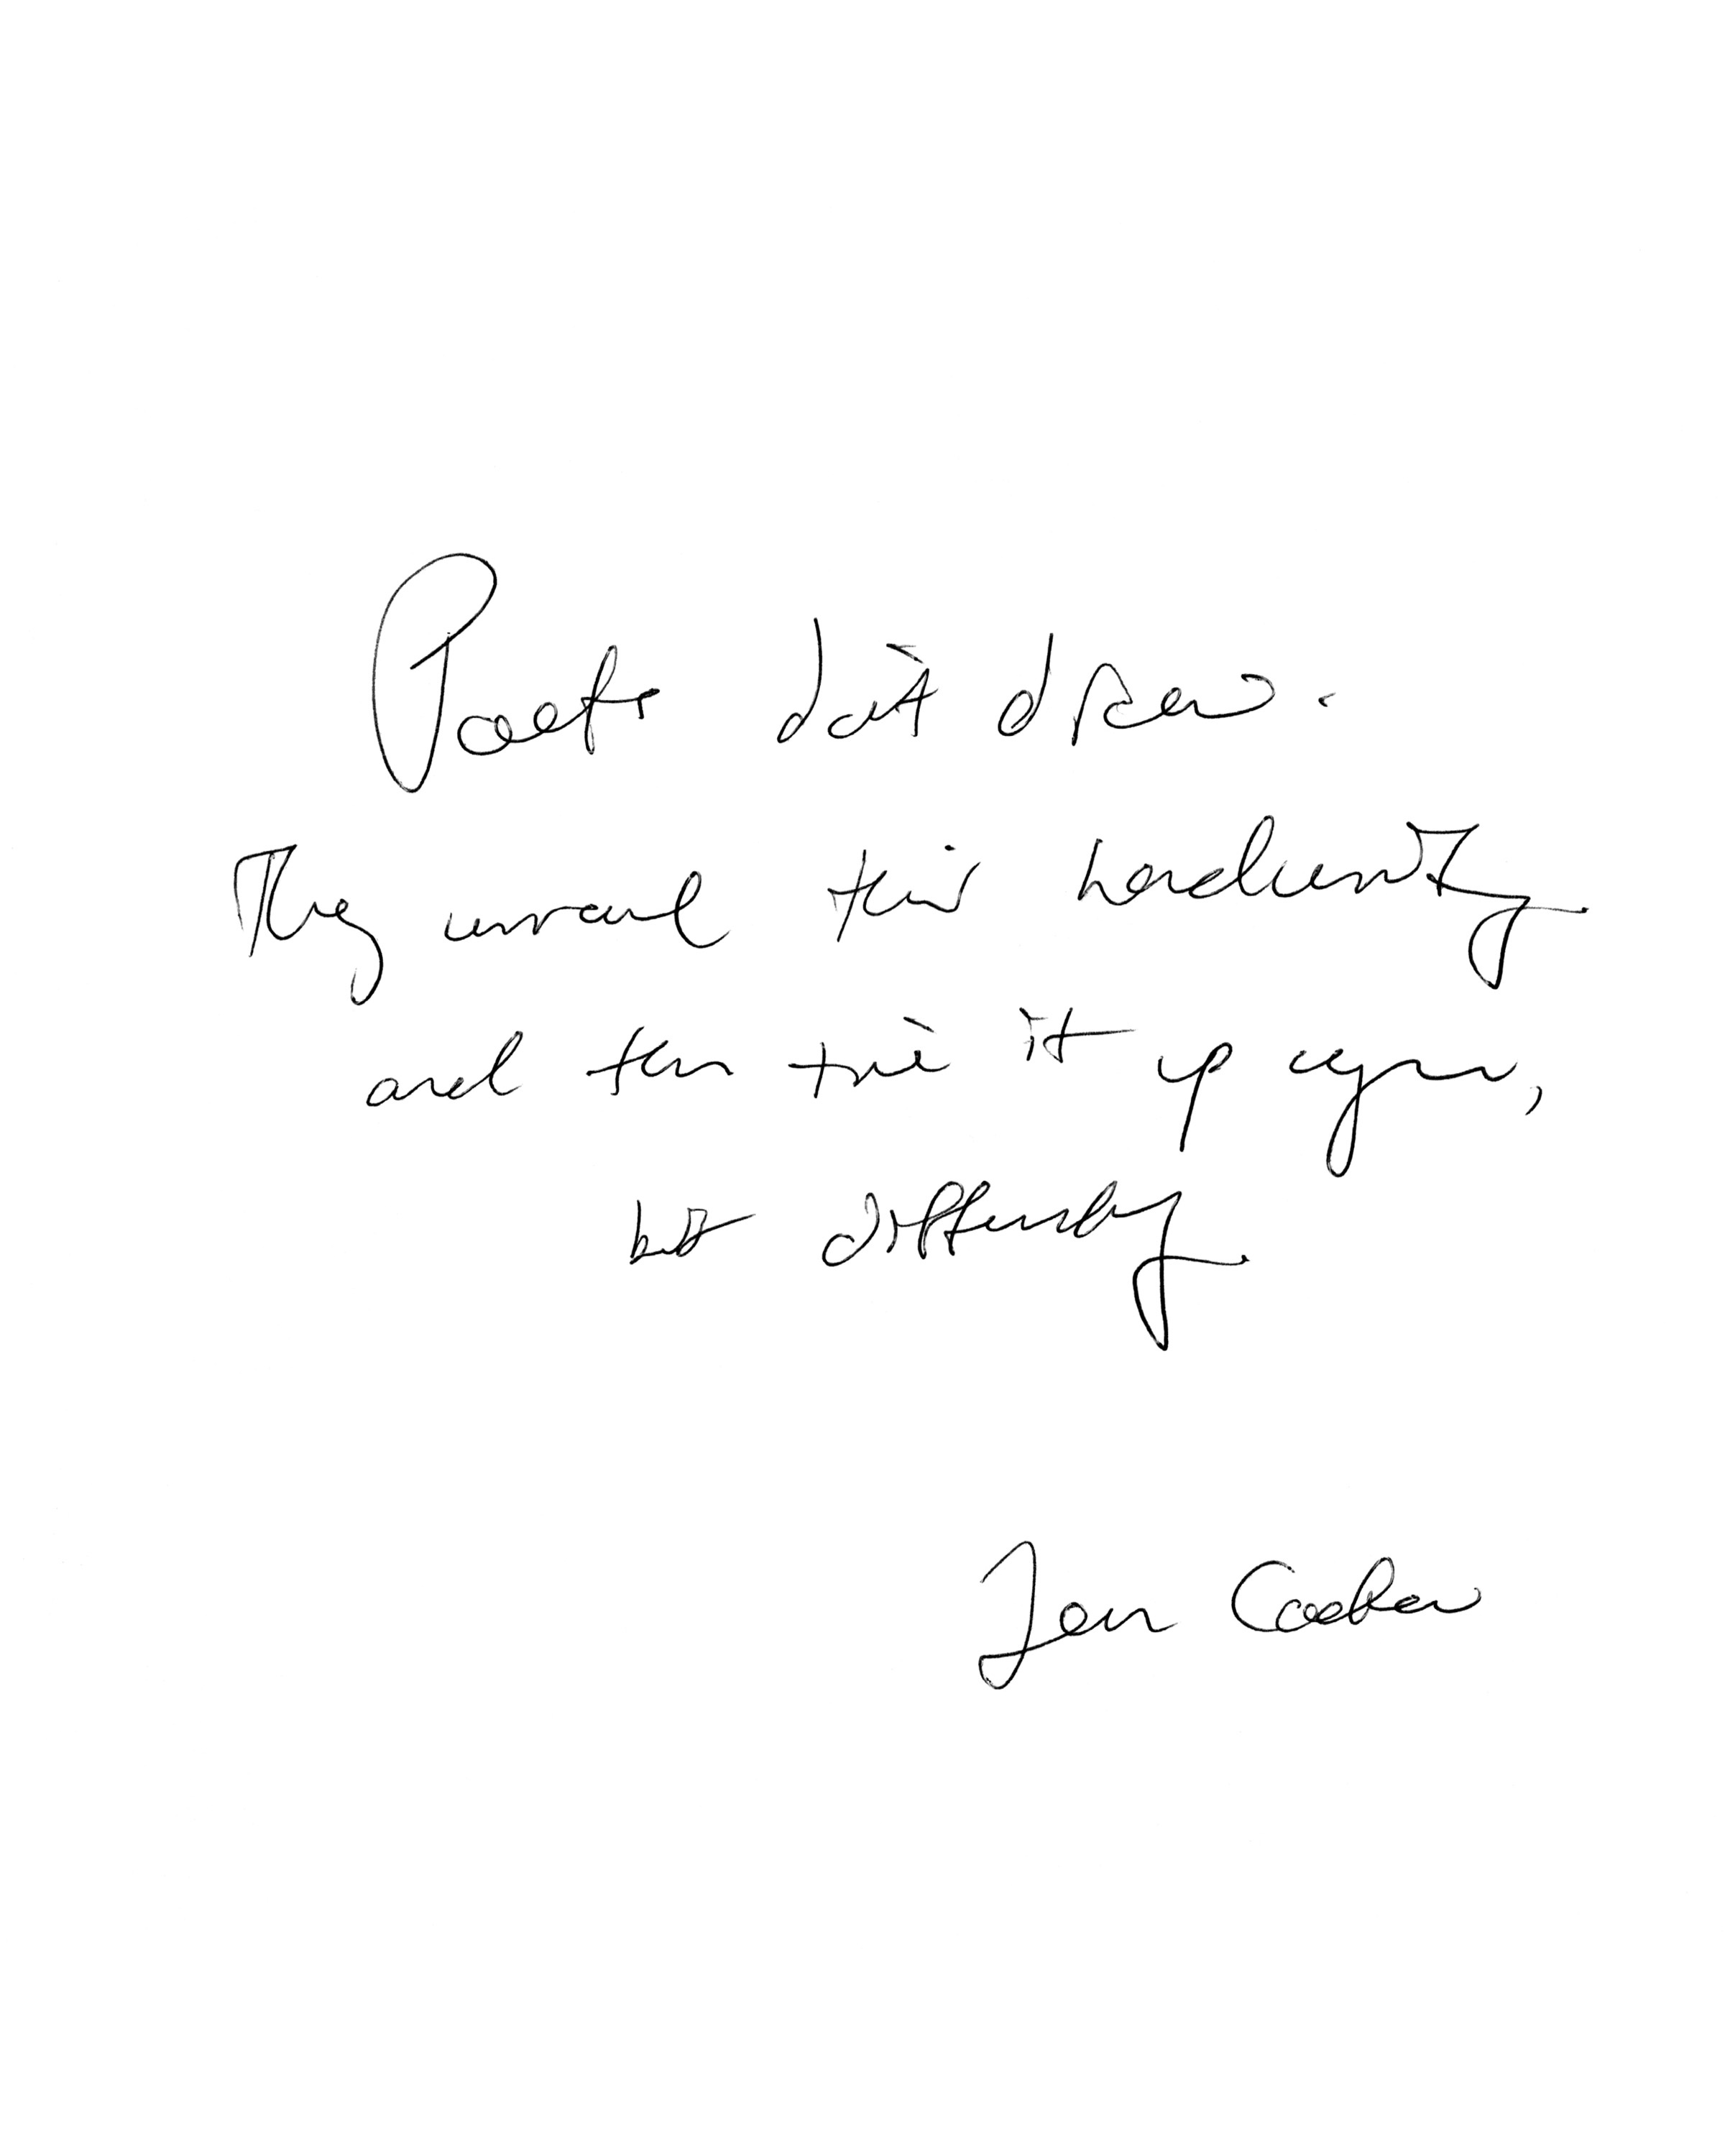 Poets don't draw.
They unravel their handwriting
and then tie it up again,
but differently.
Jean Cocteau